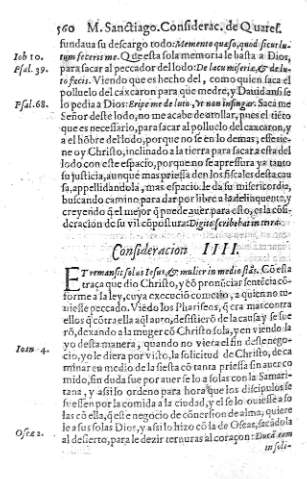 560 M. Sanctiago. Considerac. de Quares.
fundaua su descargo todo: Memento quæso, quod sicut lu-
Iob 10. tum feceris me. Q̃ de esta sola memoria le basta a Dios,
Psal. 39. para sacar al peccador del lodo: De lacu miseriæ, & de lu-
to fecis. Viendo que es hecho del, como quien saca el
polluelo del cáxcaron para que medre, y Dauid ansi se
Psal. 68. lo pedia a Dios: Eripe me de luto, vt non infigar. Sacá me
Señor deste lodo, no me acabe de arollar, pues el tiẽto
que es necessario, para sacar al polluelo del caxcaron, y
a el hõbre del lodo, porque no se en lo demas; esse tie-
ne oy Christo, inclinado a la tierra para sacar a esta del
lodo con este espacio, porque no se apressura ya tanto
su justicia, aunque mas priessa den los fiscales desta cau
sa, appellidandola, mas espacio le da su misericordia,
buscando camino para dar por libre a la delinquente, y
creyendo q̃ el mejor q̃ puede auer para esto, es la cõsi-
deracion de su vil cõpostura: Digito scribebat in terra.
Consideracion IIII.
ET remansit solus Iesus, & mulier in medio stãs. Cõ esta
traça que dio Christo, y cõ pronũciar sentẽcia cõ-
forme a la ley, cuya execuciõ cometio, a quien no tu-
uiesse peccado. Viẽdo los Phariseos, q̃ era mas contra
ellos q̃ cõtra ella aql auto, desistierõ de la causa y se fue
rõ, dexando a la muger cõ Christo sola, y en viendo la
yo desta manera, quando no viera el fin deste nego-
Ioan. 4. cio, yo le diera por visto, la solicitud de Christo, de ca
minar en medio de la siesta cõ tanta priessa sin auer co
mido, sin duda fue por auerse lo a solas con la Samari-
tana, y assi lo ordeno para hora que los discipulos se
fuessen por comida a la ciudad, y el se lo ouiesse a so
las cõ ella, q̃ este negocio de cõuersion de alma, quiere
Oseæ 2. le a sus solas Dios, y assi lo hizo cõ la de Oseas, sacãdola
al desierto, para le dezir ternuras al coraçon: Ducã eam
in soli-